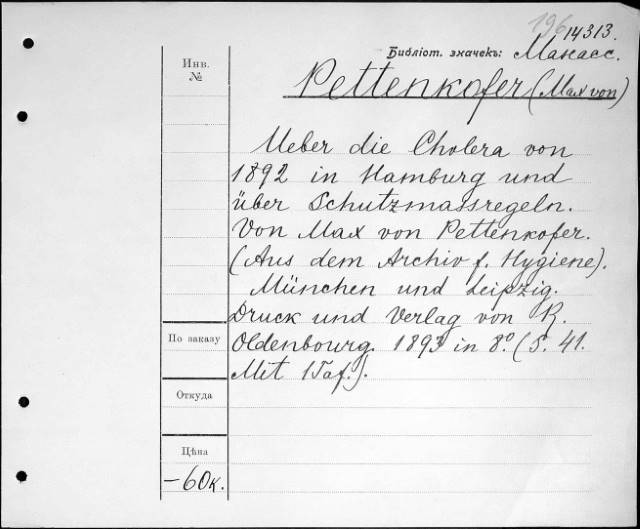 196 14313.
Библіот. значекъ: Макасс.
Инв.
№
Pettenkofer (Max von)
Ueber die Cholera von
1892 in Hamburg und
über Schutzmassregeln.
Von Max von Pettenkofer.
(Aus dem Archiv f. Hygiene).
München und Leipzig.
Druck und Verlag von R.
Oldenbourg. 1893 in 8º. (S. 41.
Mit 1 Taf.).
По заказу
Откуда
Цѣна
-60к.